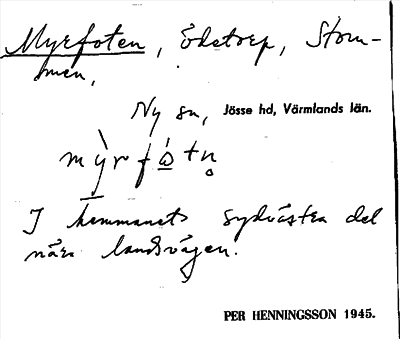 Myrfoten, Ödetorp, Stom-
men,
Ny sn, Jösse hd, Värmlands län.
I hemmanets sydvästra del
nära landsvägen.
PER HENNINGSSON 1945.